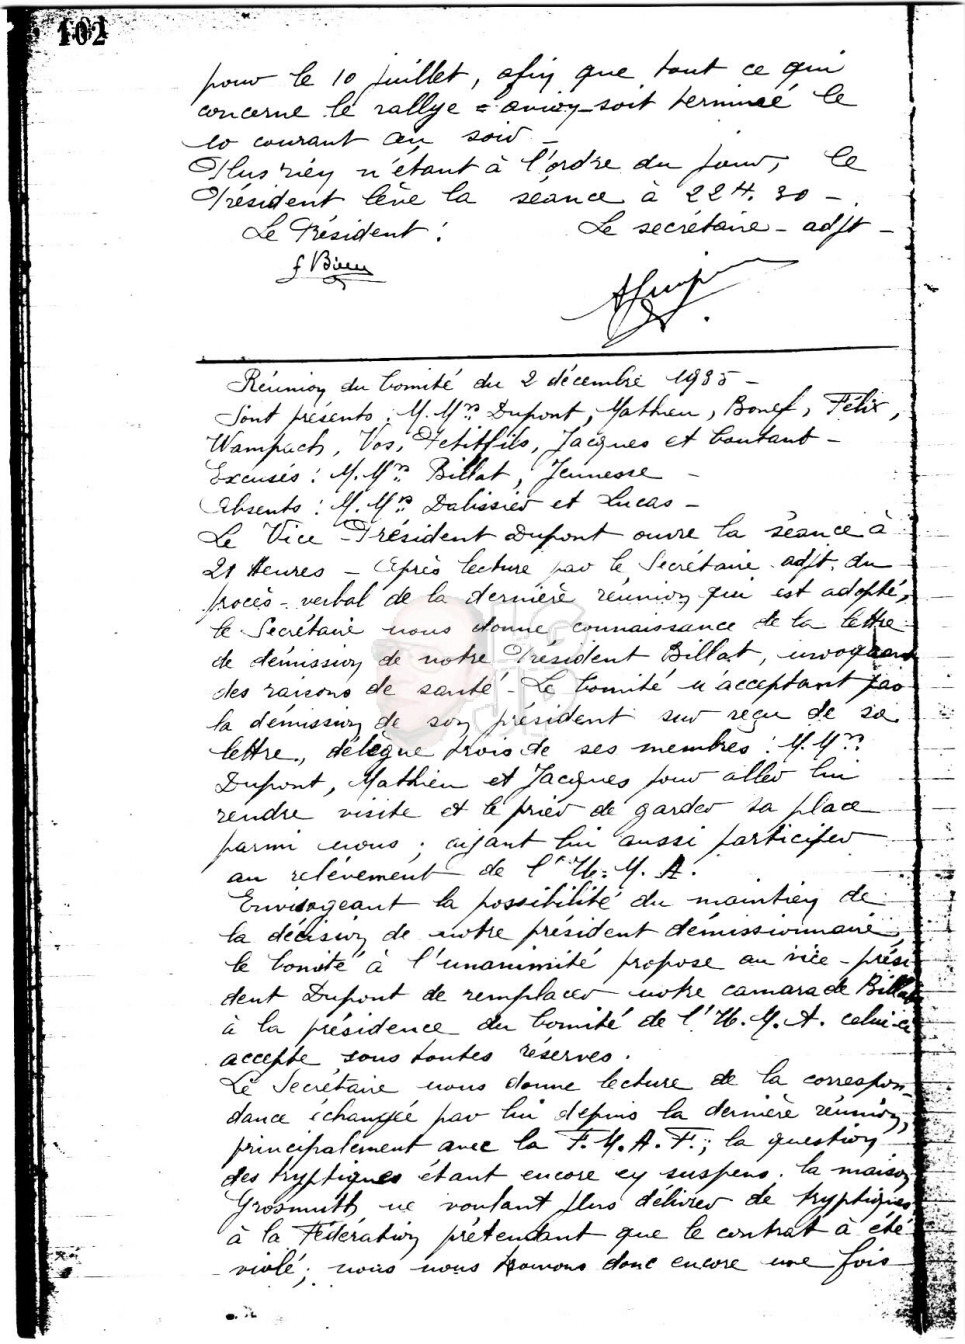 102
pour le 10 juillet, afin que tout ce qui
concerne le rallye = avion soit terminé le
10 courant au soir -
Plus rien n'étant à l'ordre du jour, le
Président lève la séance à 22 H. 30 -
Le Président : Le secrétaire - adjt -
Réunion du Comité du 2 décembre 1935 -
Sont présents : M.Mrs Dupont, Mathieu, Bonef, Félix,
Wampach, Vos, Petitfils, Jacques et Coutant -
Excusés : M.Mrs Billat, Jeunesse -
Absents : M.Mrs Dalissier et Lucas -
Le Vice - Président Dupont ouvre la séance à
21 Heures - Après lecture par le Secrétaire adjt. du
procès - verbal de la dernière réunion qui est adopté,
le Secrétaire nous donne connaissance de la lettre
de démission de notre Président Billat, invoquant
des raisons de santé - Le Comité n'acceptant pas
la démission de son président sur reçu de sa
lettre, délègue trois de ses membres : M.Mrs
Dupont, Mathieu et Jacques pour aller lui
rendre visite et le prier de garder sa place
parmi nous ; ayant lui aussi participer
au relèvement de l'U.M.A.
Envisageant la possibilité du maintien de
la décision de notre président démissionnaire,
le Comité à l'unanimité propose au vice - prési-
dent Dupont de remplacer notre camarade Billat
à la présidence du Comité de l'U.M.A. celui-ci
accepte sous toutes réserves.
Le Secrétaire nous donne lecture de la correspon-
dance échangée par lui depuis la dernière réunion,
principalement avec la F.M.A.F. ; la question
des tryptiques étant encore en suspens. la maison
Grosmuth ne voulant plus délivrer de tryptiques
à la Fédération prétendant que le contrat à été
violé ; nous nous trouvons donc encore une fois